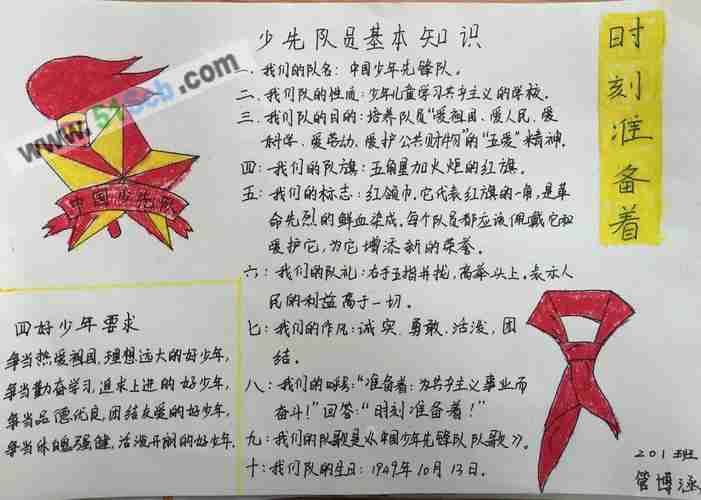 少先队员基本知识
一、我们的队名：中国少年先锋队。
二、我们队的性质：少年儿童学习共产主义的学校。
三、我们队的目的：培养队员“爱祖国、爱人民、爱
科学、爱劳动、爱护公共财物”的“五爱”精神。
四：我们的队旗：五角星加火炬的红旗。
五：我们的标志：红领巾。它代表红旗的一角，是革
命先烈的鲜血染成。每个队员都应该佩戴它和
爱护它，为它增添新的荣誉。
六：我们的队礼：右手五指并拢，高举头上。表示人
民的利益高于一切。
七：我们的作风：诚实、勇敢、活泼、团
结。
八：我们的呼号：“准备着：为共产主义事业而
奋斗！”回答：“时刻准备着！”
九：我们的队歌是《中国少年先锋队队歌》。
十：我们队的生日：1949年10月13日。
时刻准备着
中国少先队
四好少年要求
争当热爱祖国，理想远大的好少年，
争当勤奋学习，追求上进的好少年，
争当品德优良，团结友爱的好少年，
争当体魄强健，活泼开朗的好少年.
201班
管博涵